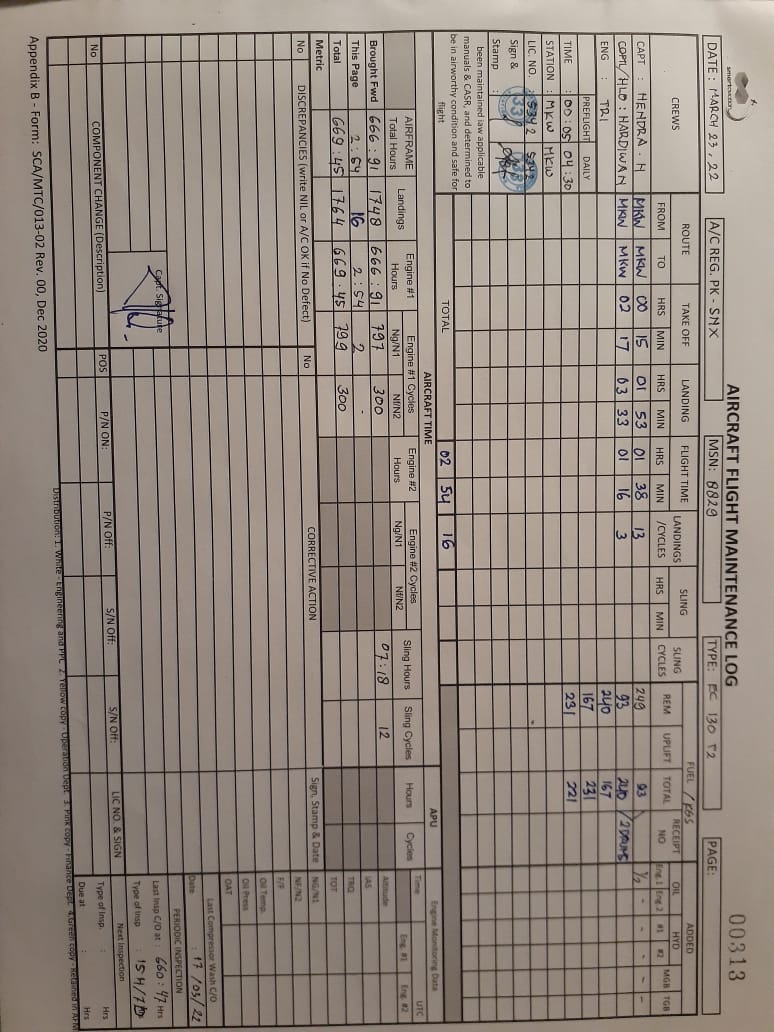 smartaviation
AIRCRAFT FLIGHT MAINTENANCE LOG
00313
DATE: MARCH 23, 22 A/C REG. PK - SNX MSN: 8829 TYPE: EC 130 T2 PAGE:
CREWS ROUTE TAKE OFF LANDING FLIGHT TIME LANDINGS /CYCLES SLING SLING CYCLES FUEL / KGS RECEIPT NO OIL HYD ADDED
FROM TO HRS MIN HRS MIN HRS MIN HRS MIN REM UPLIFT TOTAL Eng 1 Eng 2 #1 #2 MGB TGB
CAPT : HENDRA . H MKW MKW 00 15 01 53 01 38 13 249 93 1/2 - - - - -
COPT/HLO : HARDIWAN MKW MKW 02 17 03 33 01 16 3 93 240 / 2 DRUMS
ENG : TRI 240 167
PREFLIGHT DAILY 167 231
TIME : 00:05 04:30 231 221
STATION : MKW MKW
LIC. NO. : 5342 5342
Sign & Stamp :
been maintained iaw applicable manuals & CASR, and determined to be in airworthy condition and safe for flight
TOTAL 02 54 16
AIRCRAFT TIME APU Engine Monitoring Data
AIRFRAME Total Hours Landings Engine #1 Hours Engine #1 Cycles Ng/N1 Nf/N2 Engine #2 Hours Engine #2 Cycles Ng/N1 Nf/N2 Sling Hours Sling Cycles Hours Cycles
Time UTC
Altitude Eng. #1 Eng. #2
Brought Fwd 666:91 1748 666:91 797 300 07:18 12
IAS
This Page 2:54 16 2:54 2 -
TRQ
Total 669:45 1764 669:45 799 300
TOT
Metric
No DISCREPANCIES (write NIL or A/C OK if No Defect) No CORRECTIVE ACTION Sign, Stamp & Date
NG/N1
NF/N2
F/F
Oil Temp.
Oil Press
OAT
Last Compressor Wash C/O
Date : 17 / 03 / 22
PERIODIC INSPECTION
Capt. Signature
Last Insp C/O at : 660:47 Hrs
Type of Insp :
Next Inspection
No COMPONENT CHANGE (Description) POS P/N ON: P/N Off: S/N Off: S/N Off: LIC NO. & SIGN
Type of Insp. : Hrs
Due at : Hrs
Distribution: 1. White - Engineering and PPC 2. Yellow copy - Operation Dept. 3. Pink copy - Finance Dept. 4. Green copy - Retained in AFM
Appendix B - Form: SCA/MTC/013-02 Rev. 00, Dec 2020